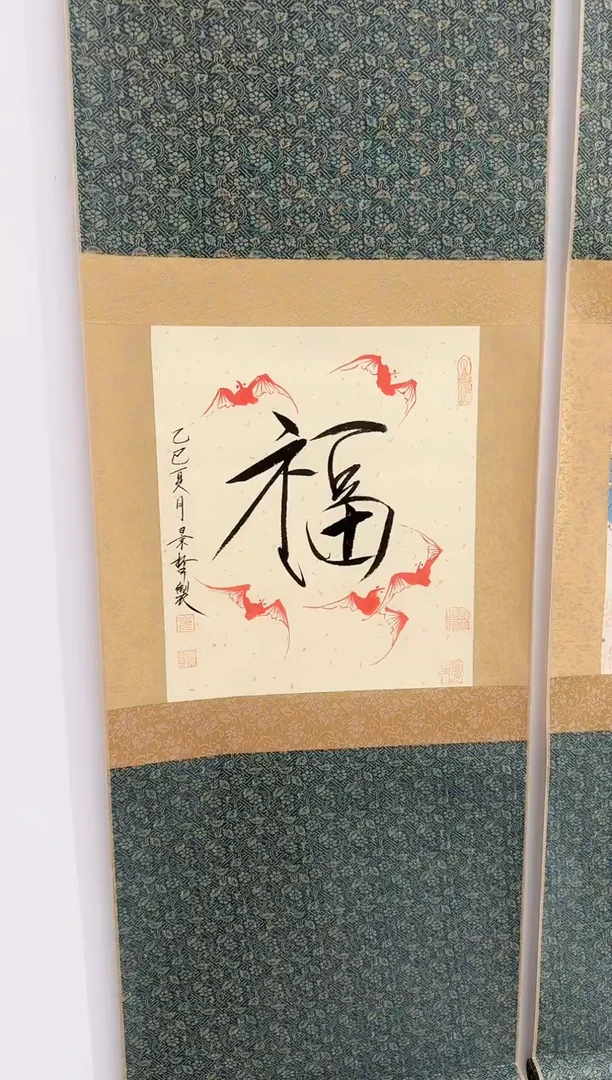 福
乙巳夏月景哲製